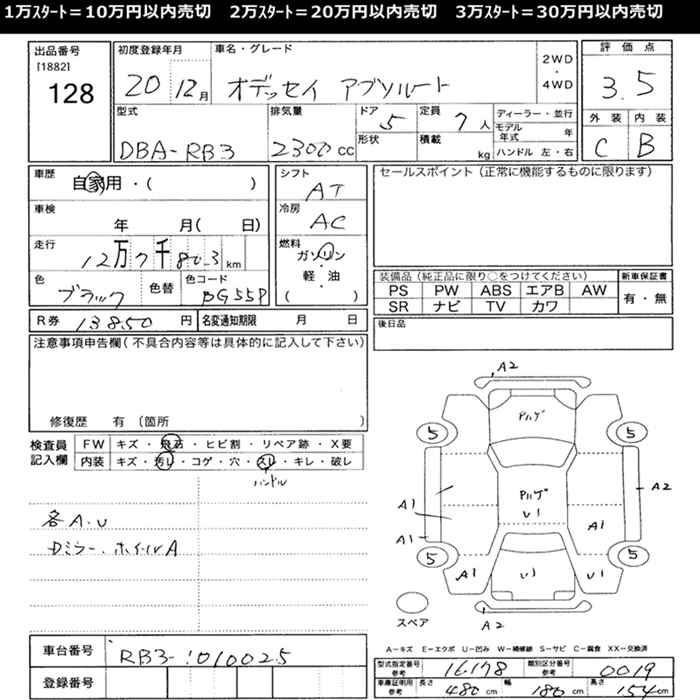 1万ｽﾀｰﾄ＝10万円以内売切　2万ｽﾀｰﾄ＝20万円以内売切　3万ｽﾀｰﾄ＝30万円以内売切
出品番号
[1882]
128
初度登録年月
20 12月
車名・グレード
オデッセイ アブソルート
2WD
・
4WD
評価点
3.5
外装 内装
C B
型式
DBA-RB3
排気量
2300cc
ドア 5
形状
定員 7人
積載 kg
ディーラー・並行
モデル年式 年
ハンドル 左・右
車歴
自家用・( )
車検
年 月( 日)
走行
12万7千803km
色
ブラック
色替
色コード
BG55P
シフト
AT
冷房
AC
燃料
ガソリン
・
軽・油
( )
セールスポイント（正常に機能するものに限ります）
装備品（純正品に限り○をつけてください）
PS PW ABS エアB AW
SR ナビ TV カワ
新車保証書
有・無
後日品
R券 13850円
名変通知期限 月 日
注意事項申告欄（不具合内容等は具体的に記入して下さい）
修復歴 有（箇所 ）
検査員記入欄
FW キズ・飛石・ヒビ割・リペア跡・X要
内装 キズ・汚レ・コゲ・穴・スレ・キレ・破レ
ハンドル
各A.U
Dミラー.ホイルA
A2
Pハゲ
5 5
Pハゲ
U1
A1
A1
A1
A2
5 5
A1 U1 U1
A2
スペア
A－キズ E－エクボ U－凹み W－補修跡 S－サビ C－腐食 XX－交換済
車台番号
RB3-1010025
登録番号
型式指定番号
参考
16178
類別区分番号
参考
0019
車庫証明用
参考
長さ 480cm
幅 180cm
高さ 154cm